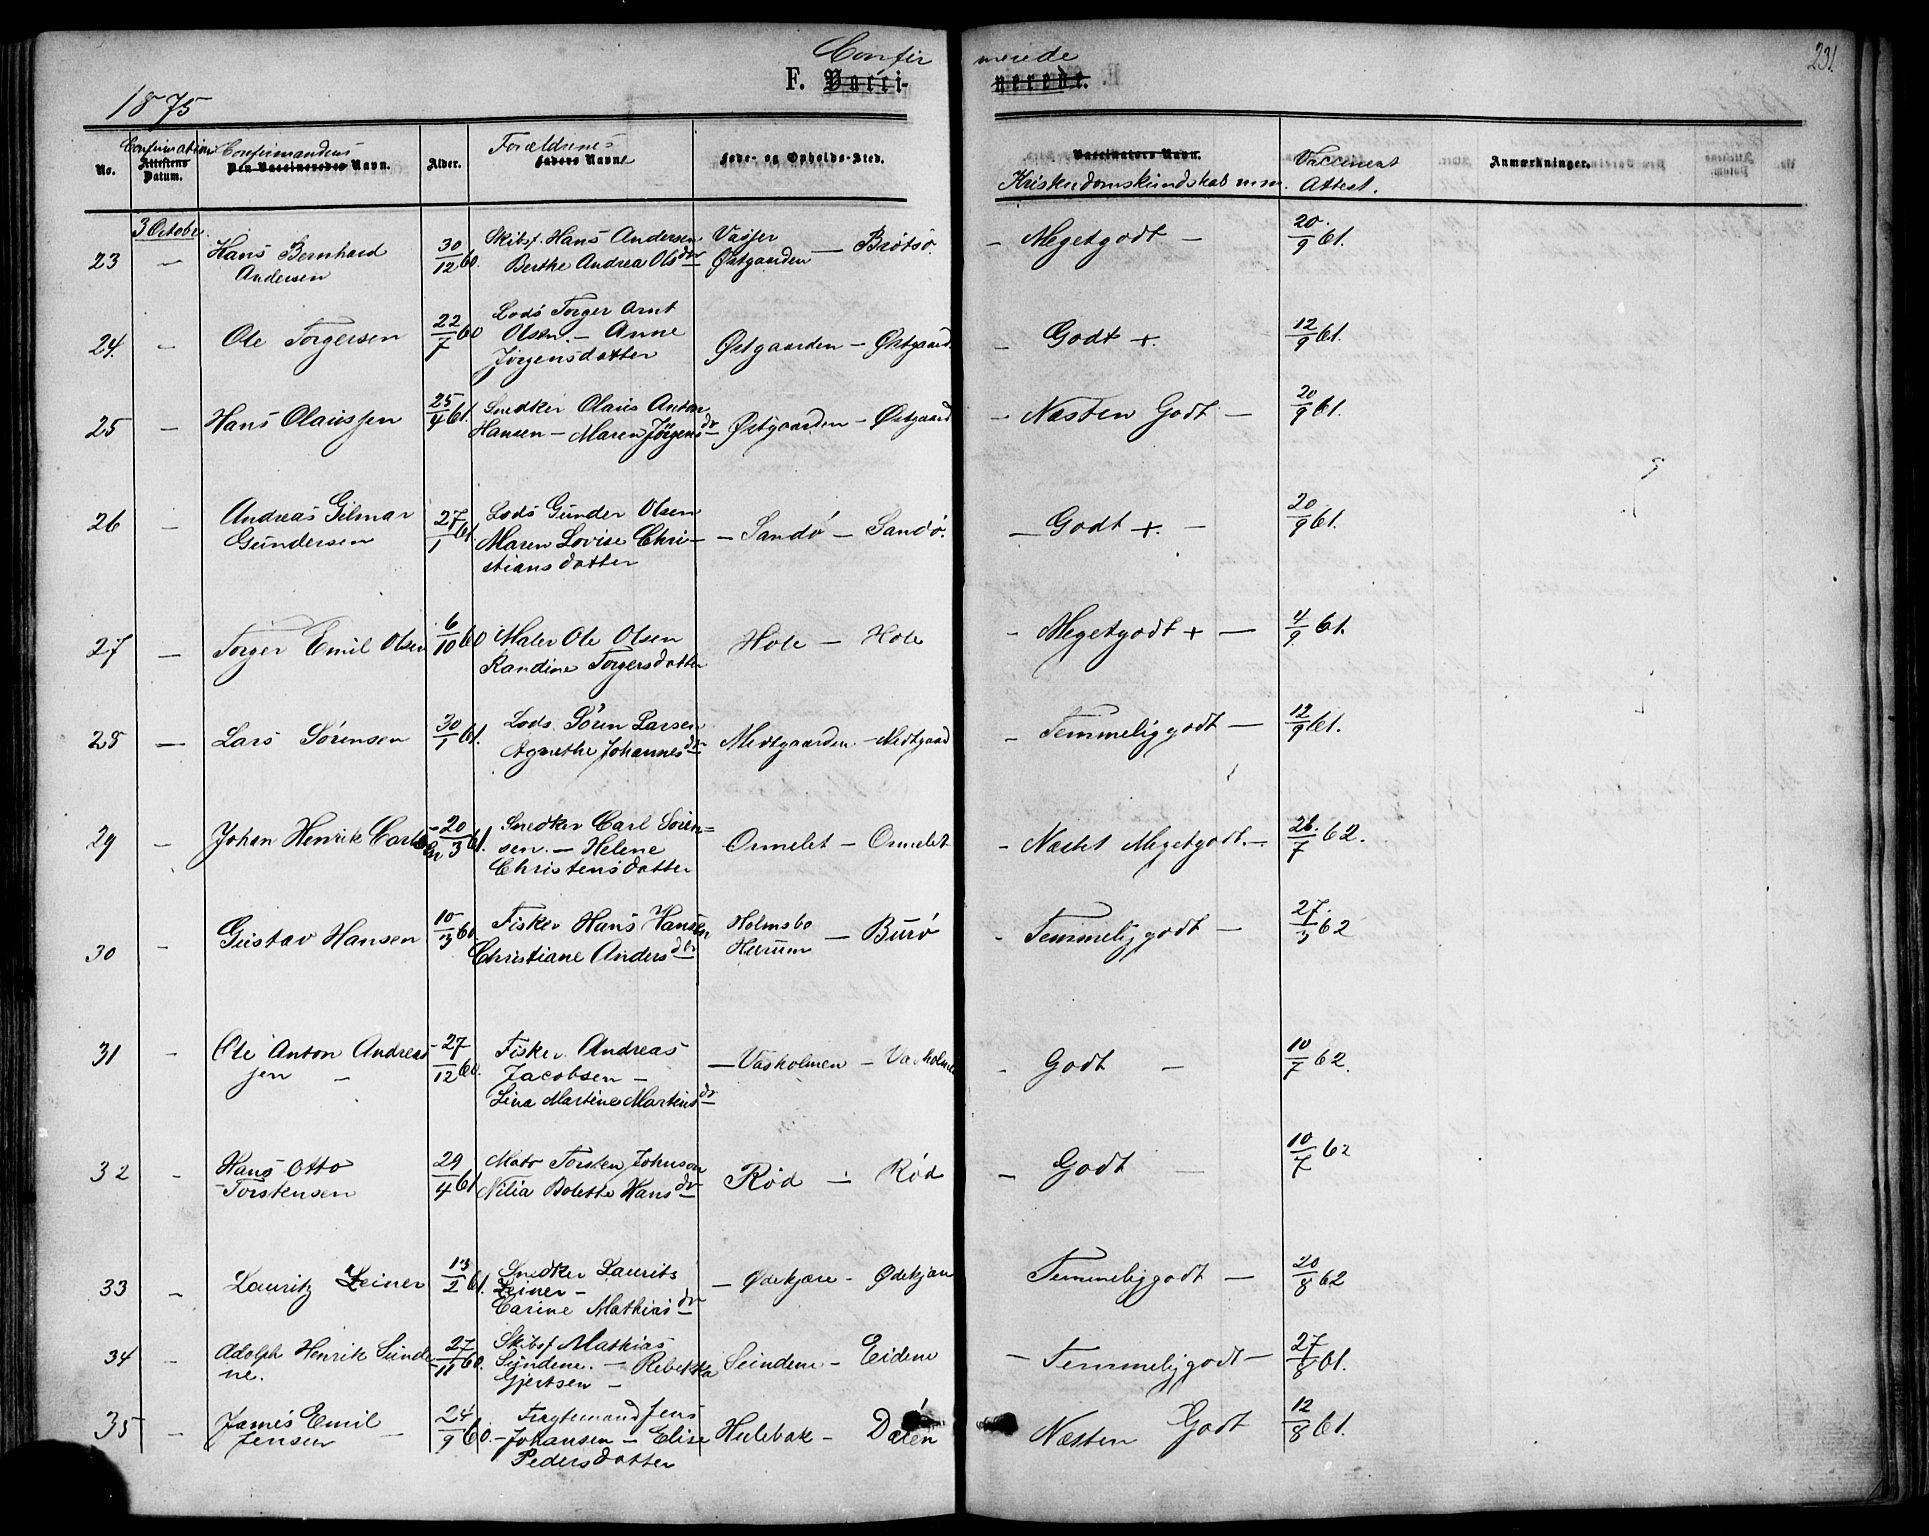 Confir merede
231
F. Vacci- nerede.
1875
No. Confirmations Attestens Datum. Confirmandens Den Vaccineredes Navn. Alder. Forældrenes Faders Navne Føde- og Opholds-Sted. Vaccinators Navn. Kristendomskundskab m.m. Vaccinens Attest. Anmærkninger.
3 October.
23 — Hans Bernhard Andersen 30/12 60. Skibsf. Hans Andersen Berthe Andrea Olsdr Vasser Østgaarden — Brøtsø. — Megetgodt — 20/9 61.
24. — Ole Torgersen 22/7 60 Lods Torger Arnt Olsen. — Anne Jørgensdatter Østgaarden — Østgaard. — Godt +. 12/9 61.
25 — Hans Olaussen 25/4 61. Snedker Olaus Anton Hansen — Maren Jørgensdr Østgaarden — Østgaard — Næsten Godt — 20/9 61.
26 — Andreas Gilmar Gundersen 27/1 61 Lods Gunder Olsen Maren Lovise Christiansdatter — Sandø — Sandø. — Godt +. — 20/9 61.
27 — Torger Emil Olsen 6/10 60 Maler Ole Olsen Randine Torgersdatter Hole — Hole — Megetgodt + — 4/9 61.
28 — Lars Sørensen 30/1 61. Lods Søren Larsen Agnethe Johannesdr Medtgaarden — Medtgaard — Temmeliggodt — 12/9 61.
29 — Johan Henrik Carlsen 20/3 61. Snedker Carl Sørensen. — Helene Christensdatter Ormelet — Ormelet — Næstet Megetgodt. — 26/7 62.
30 — Gustav Hansen 10/3 60 Fisker Hans Hansen Christiane Andersdr Holmsbo Hurum — Burø — Temmeliggodt — 27/3 62
31 — Ole Anton Andreassen — 27/12 60. Fisker Andreas Jacobsen — Lina Martine Martinsdr — Vasholmen — Vasholmen — Godt — 10/7 62.
32 — Hans Otto Torstensen 29/4 61 Matr Torsten Johnson Nilia Bolette Hansdr Rød — Rød — Godt — 10/7 62
33 — Lauritz Leiner 13/2 61. Snedker Laurits Leiner — Carine Mathiasdr — Ødekjære — Ødekjær Temmeliggodt — 20/8 62
34 — Adolph Henrik Sundene. 27/11 60. Skibsf Mathias Sundene. — Rebekka Gjertsen — Sundene — Eidene — Temmeliggodt — 27/8 61.
35 — James Emil Jensen — 24/9 60. Fragtemand Jens Johansen — Elise Pedersdatter Hulebak — Dalen — Næsten Godt 12/8 61.